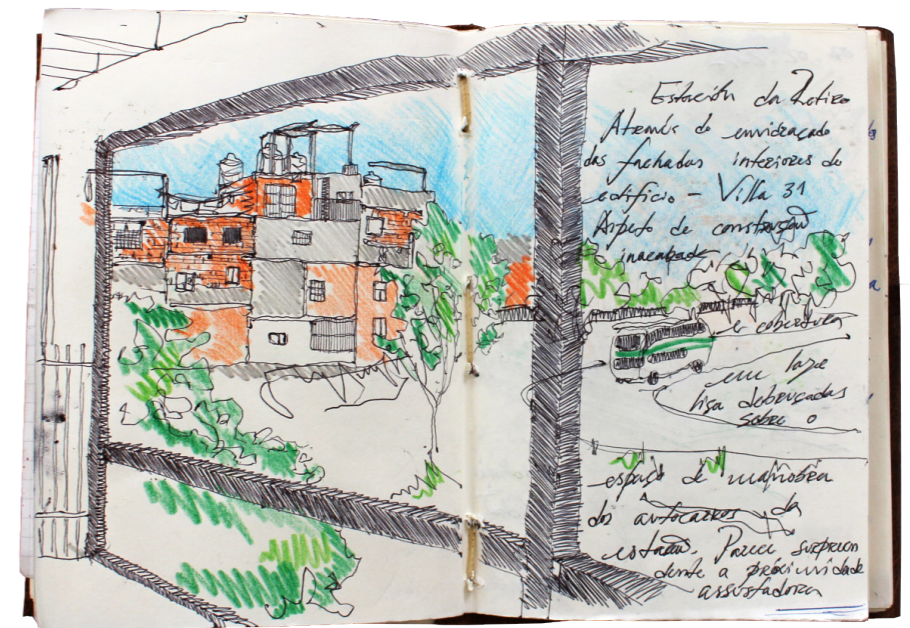 Estación da Retiro
Através do envidraçado
das fachadas interiores do
edifício - Villa 31
Aspeto de construção
inacabada
e cobertura
em laje
lisa debruçadas
sobre o
espaço de manobra
dos autocarros da
estação. Parece surpreen
dente a proximidade
assustadora